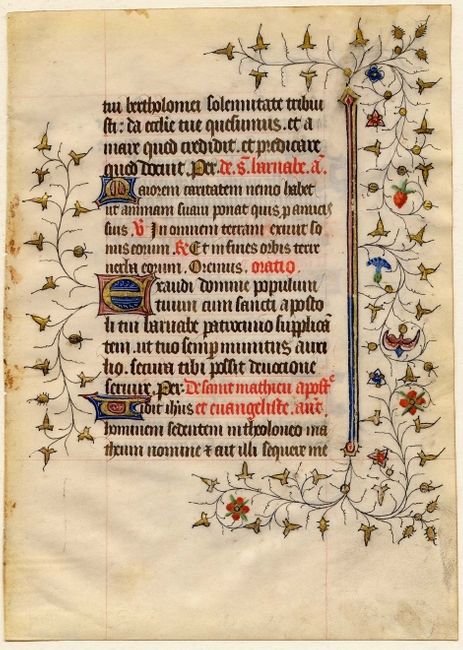 tui bertholomei solennitate tribui
sti: da ecclie tue quesumus. et a
mare quod credidit. et predicare
quod docuit. Per. de. S. barnabe. a.
Maiorem caritatem nemo habet
ut animam suam ponat quis p amicis
suis. V. In omnem terram exiuit so
nus eorum. R. Et in fines orbis terre
uerba eorum. Oremus. oratio.
Exaudi domine populum
tuum cum sancti aposto
li tui barnabe patrocinio supplicā
tem. ut tuo semp munitus auxi
lio. secura tibi possit deuocione
seruire. Per. De sanct mathieu apost
Uidit ihus et euangeliste. ant.
hominem sedentem in tholoneo ma
theum nomine et ait illi sequere me